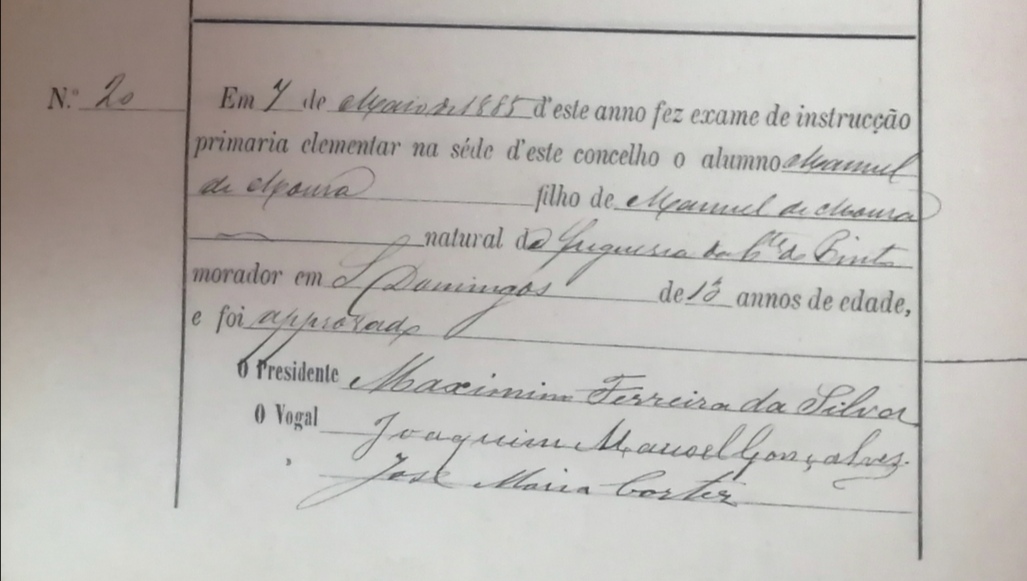 N.º 20
Em 7 de Maio de 1885 d'este anno fez exame de instrucção
primaria elementar na séde d'este concelho o alumno Manuel
de Moura filho de Manuel de Moura
natural da Freguesia da Cte do Pinto
morador em S Domingos de 13 annos de edade,
e foi approvado
O Presidente Maximim Ferreira da Silva
O Vogal Joaquim Manoel Gonçalves
José Maria Cortez